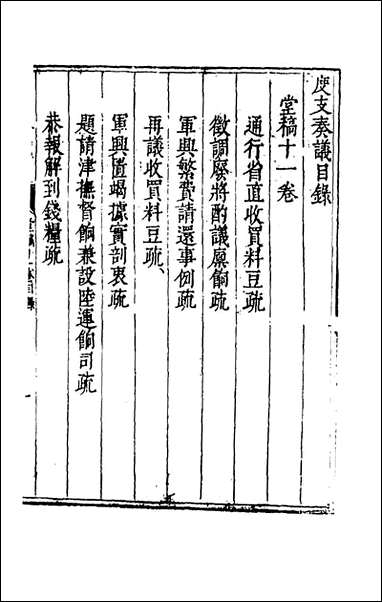 度支奏議目錄
堂稿十一卷
通行省直收買料豆疏
徵調廢將酌議廩餉疏
軍興繁費請還事例疏
再議收買料豆疏
軍興匱竭據實剖衷疏
題請津撫督餉兼設陸運餉司疏
恭報解到錢糧疏